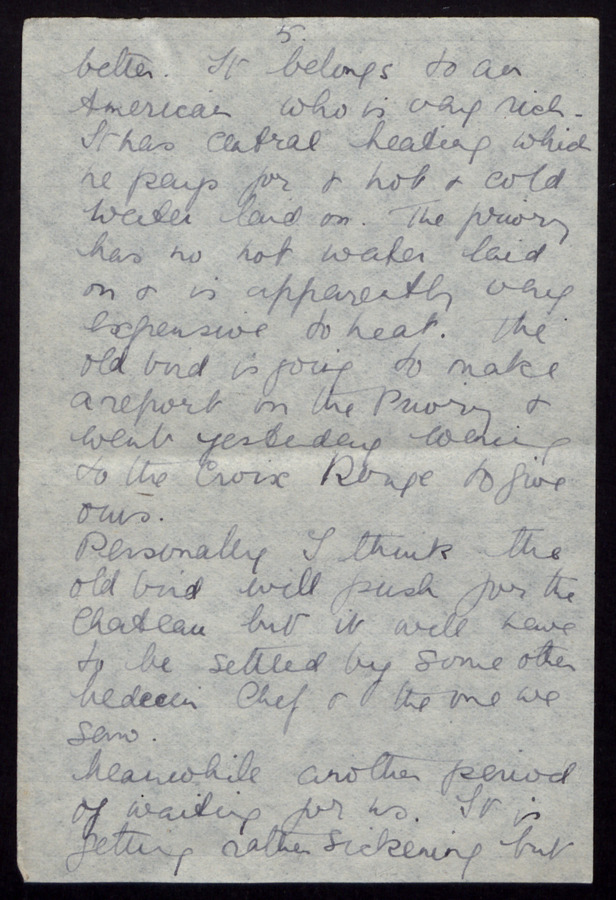 5.
better. It belongs to an
American who is very rich -
It has central heating which
he pays for & hot & cold
water laid on. The priory
has no hot water laid
on & is apparently very
expensive to heat. The
old bird is going to make
a report on the Priory &
went yesterday evening
to the Croix Rouge to give
ours.
Personally I think the
old bird will push for the
Chateau but it will have
to be settled by some other
Medecin Chef & the one we
saw.
Meanwhile another period
of waiting for us. It is
getting rather sickening but